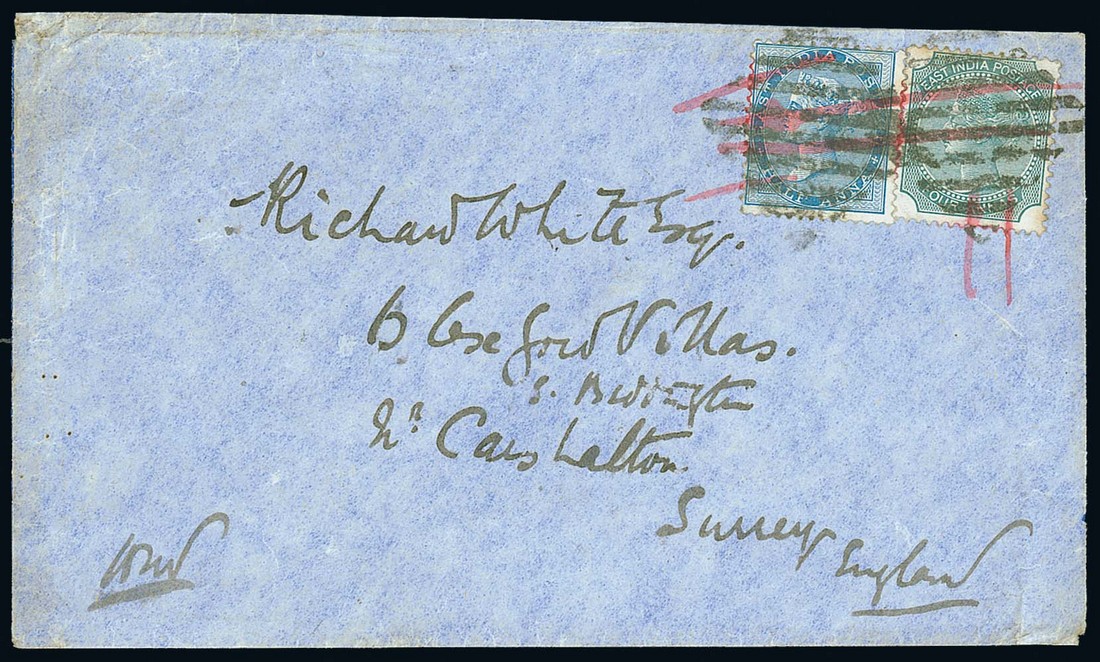 EAST INDIA POSTAGE
HALF ANNA
EAST INDIA POSTAGE
FOUR ANNAS
Richard White Esq.
Villas.
S. Beddington
Nr. Carshalton.
Surrey
England